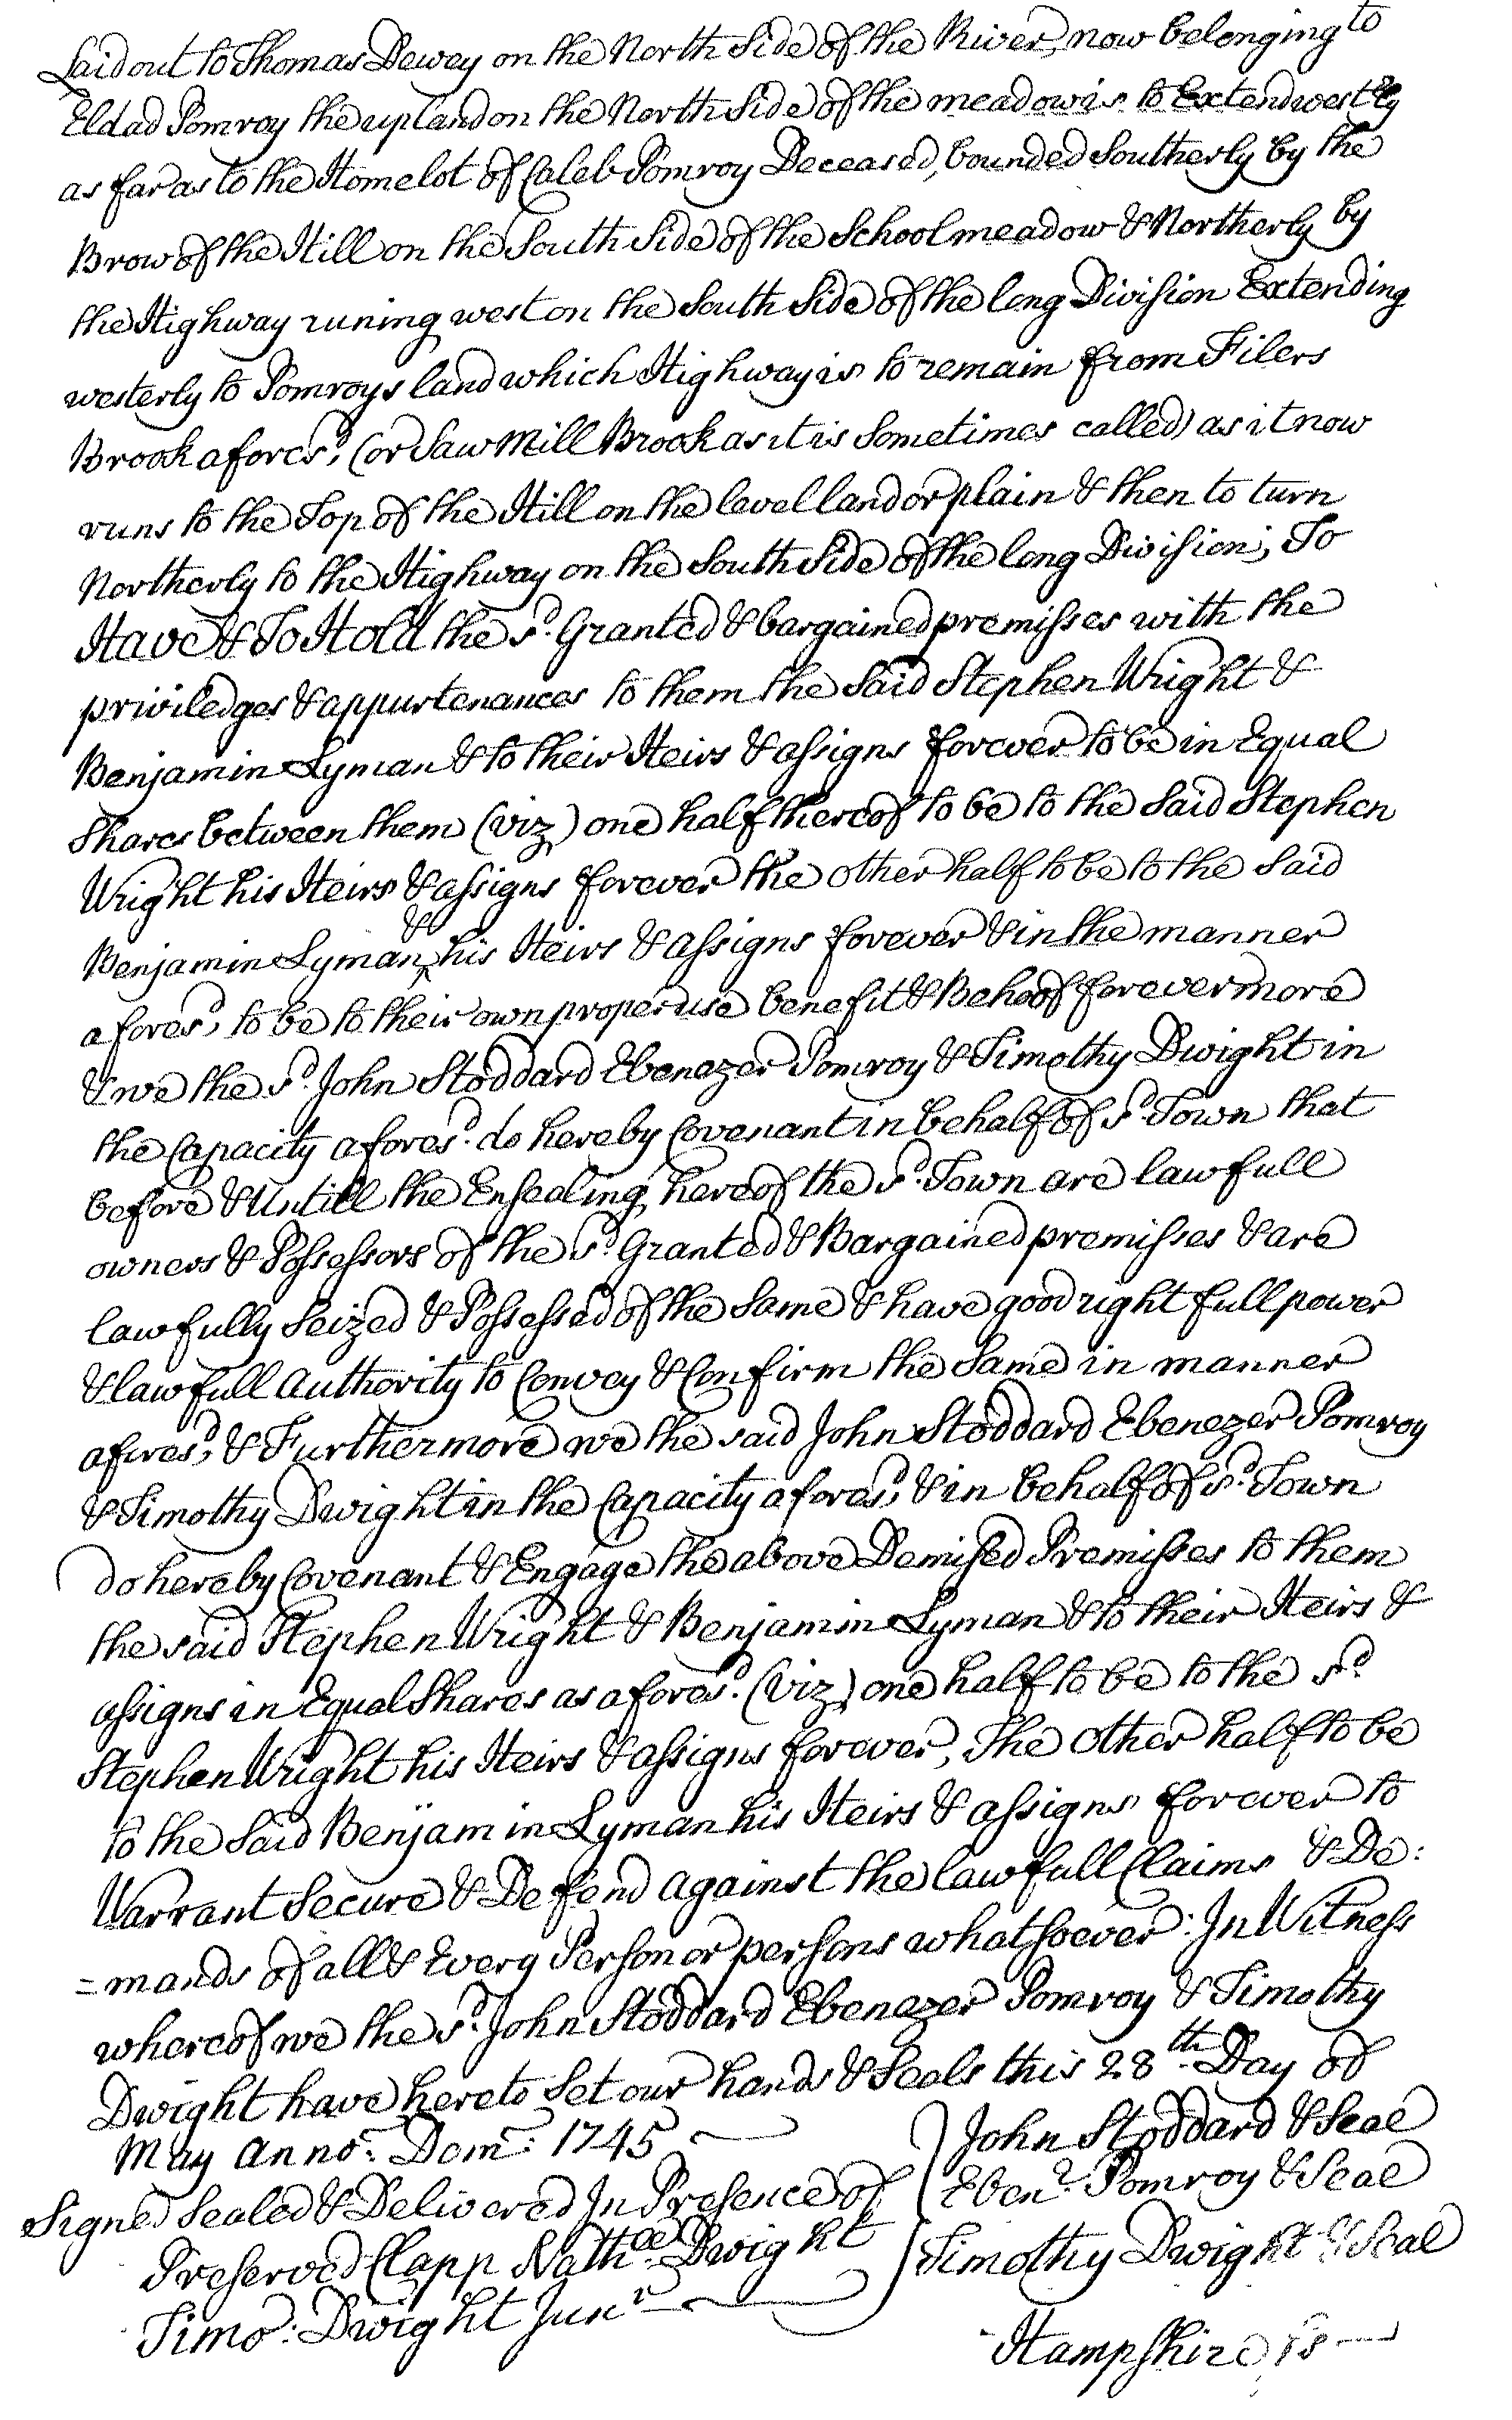 Laid out to Thomas Dewey on the North Side of the River, now belonging to
Eldad Pomroy the upland on the North Side of the meadow is to Extend westerly
as far as to the Homelot of Caleb Pomroy Deceased, bounded Southerly by the
Brow of the Hill on the South Side of the School meadow & Northerly by
the Highway runing west on the South Side of the long Division Extending
westerly to Pomroys land which Highway is to remain from Filers
Brook afores.d, (or Saw Mill Brook as it is Sometimes called) as it now
runs to the Top of the Hill on the level land or plain & then to turn
Northerly to the Highway on the South Side of the long Division; To
Have & To Hold the s.d Granted & bargained premisses with the
priviledges & appurtenances to them the Said Stephen Wright &
Benjamin Lyman & to their Heirs & assigns forever to be in Equal
Shares between them (viz) one half thereof to be to the Said Stephen
Wright his Heirs & assigns forever the other half to be to the Said
Benjamin Lyman & his Heirs & assigns forever & in the manner
afores.d, to be to their own proper use benefit & Behoof forevermore
& we the s.d John Stoddard Ebenezer Pomroy & Timothy Dwight in
the Capacity afores.d do hereby Covenant in behalf of s.d Town that
before & Untill the Ensealing hereof the s.d Town are lawfull
owners & Possessors of the s.d Granted & Bargained premisses & are
lawfully Seized & Possessed of the Same & have good right full power
& lawfull Authority to Convey & Confirm the Same in manner
afores.d, & Furthermore we the said John Stoddard Ebenezer Pomroy
& Timothy Dwight in the Capacity afores.d, & in behalf of s.d Town
do hereby Covenant & Engage the above Demised Premisses to them
the said Stephen Wright & Benjamin Lyman & to their Heirs &
assigns in Equal Shares as afores.d (viz) one half to be to the s.d
Stephen Wright his Heirs & assigns forever, The Other half to be
to the Said Benjamin Lyman his Heirs & assigns forever to
Warrant Secure & Defend against the lawfull Claims & De:
=mands of all & Every Person or persons whatsoever: In Witness
whereof we the s.d John Stoddard Ebenezer Pomroy & Timothy
Dwight have hereto Set our hands & Seals this 28th Day of
May Anno: Dom: 1745
Signed Sealed & Delivered In Presence of
Preserved Clapp Nath.ll Dwight
Timo: Dwight Jun.r
John Stoddard & Seal
Eben.r Pomroy & Seal
Timothy Dwight & Seal
Hampshire ss